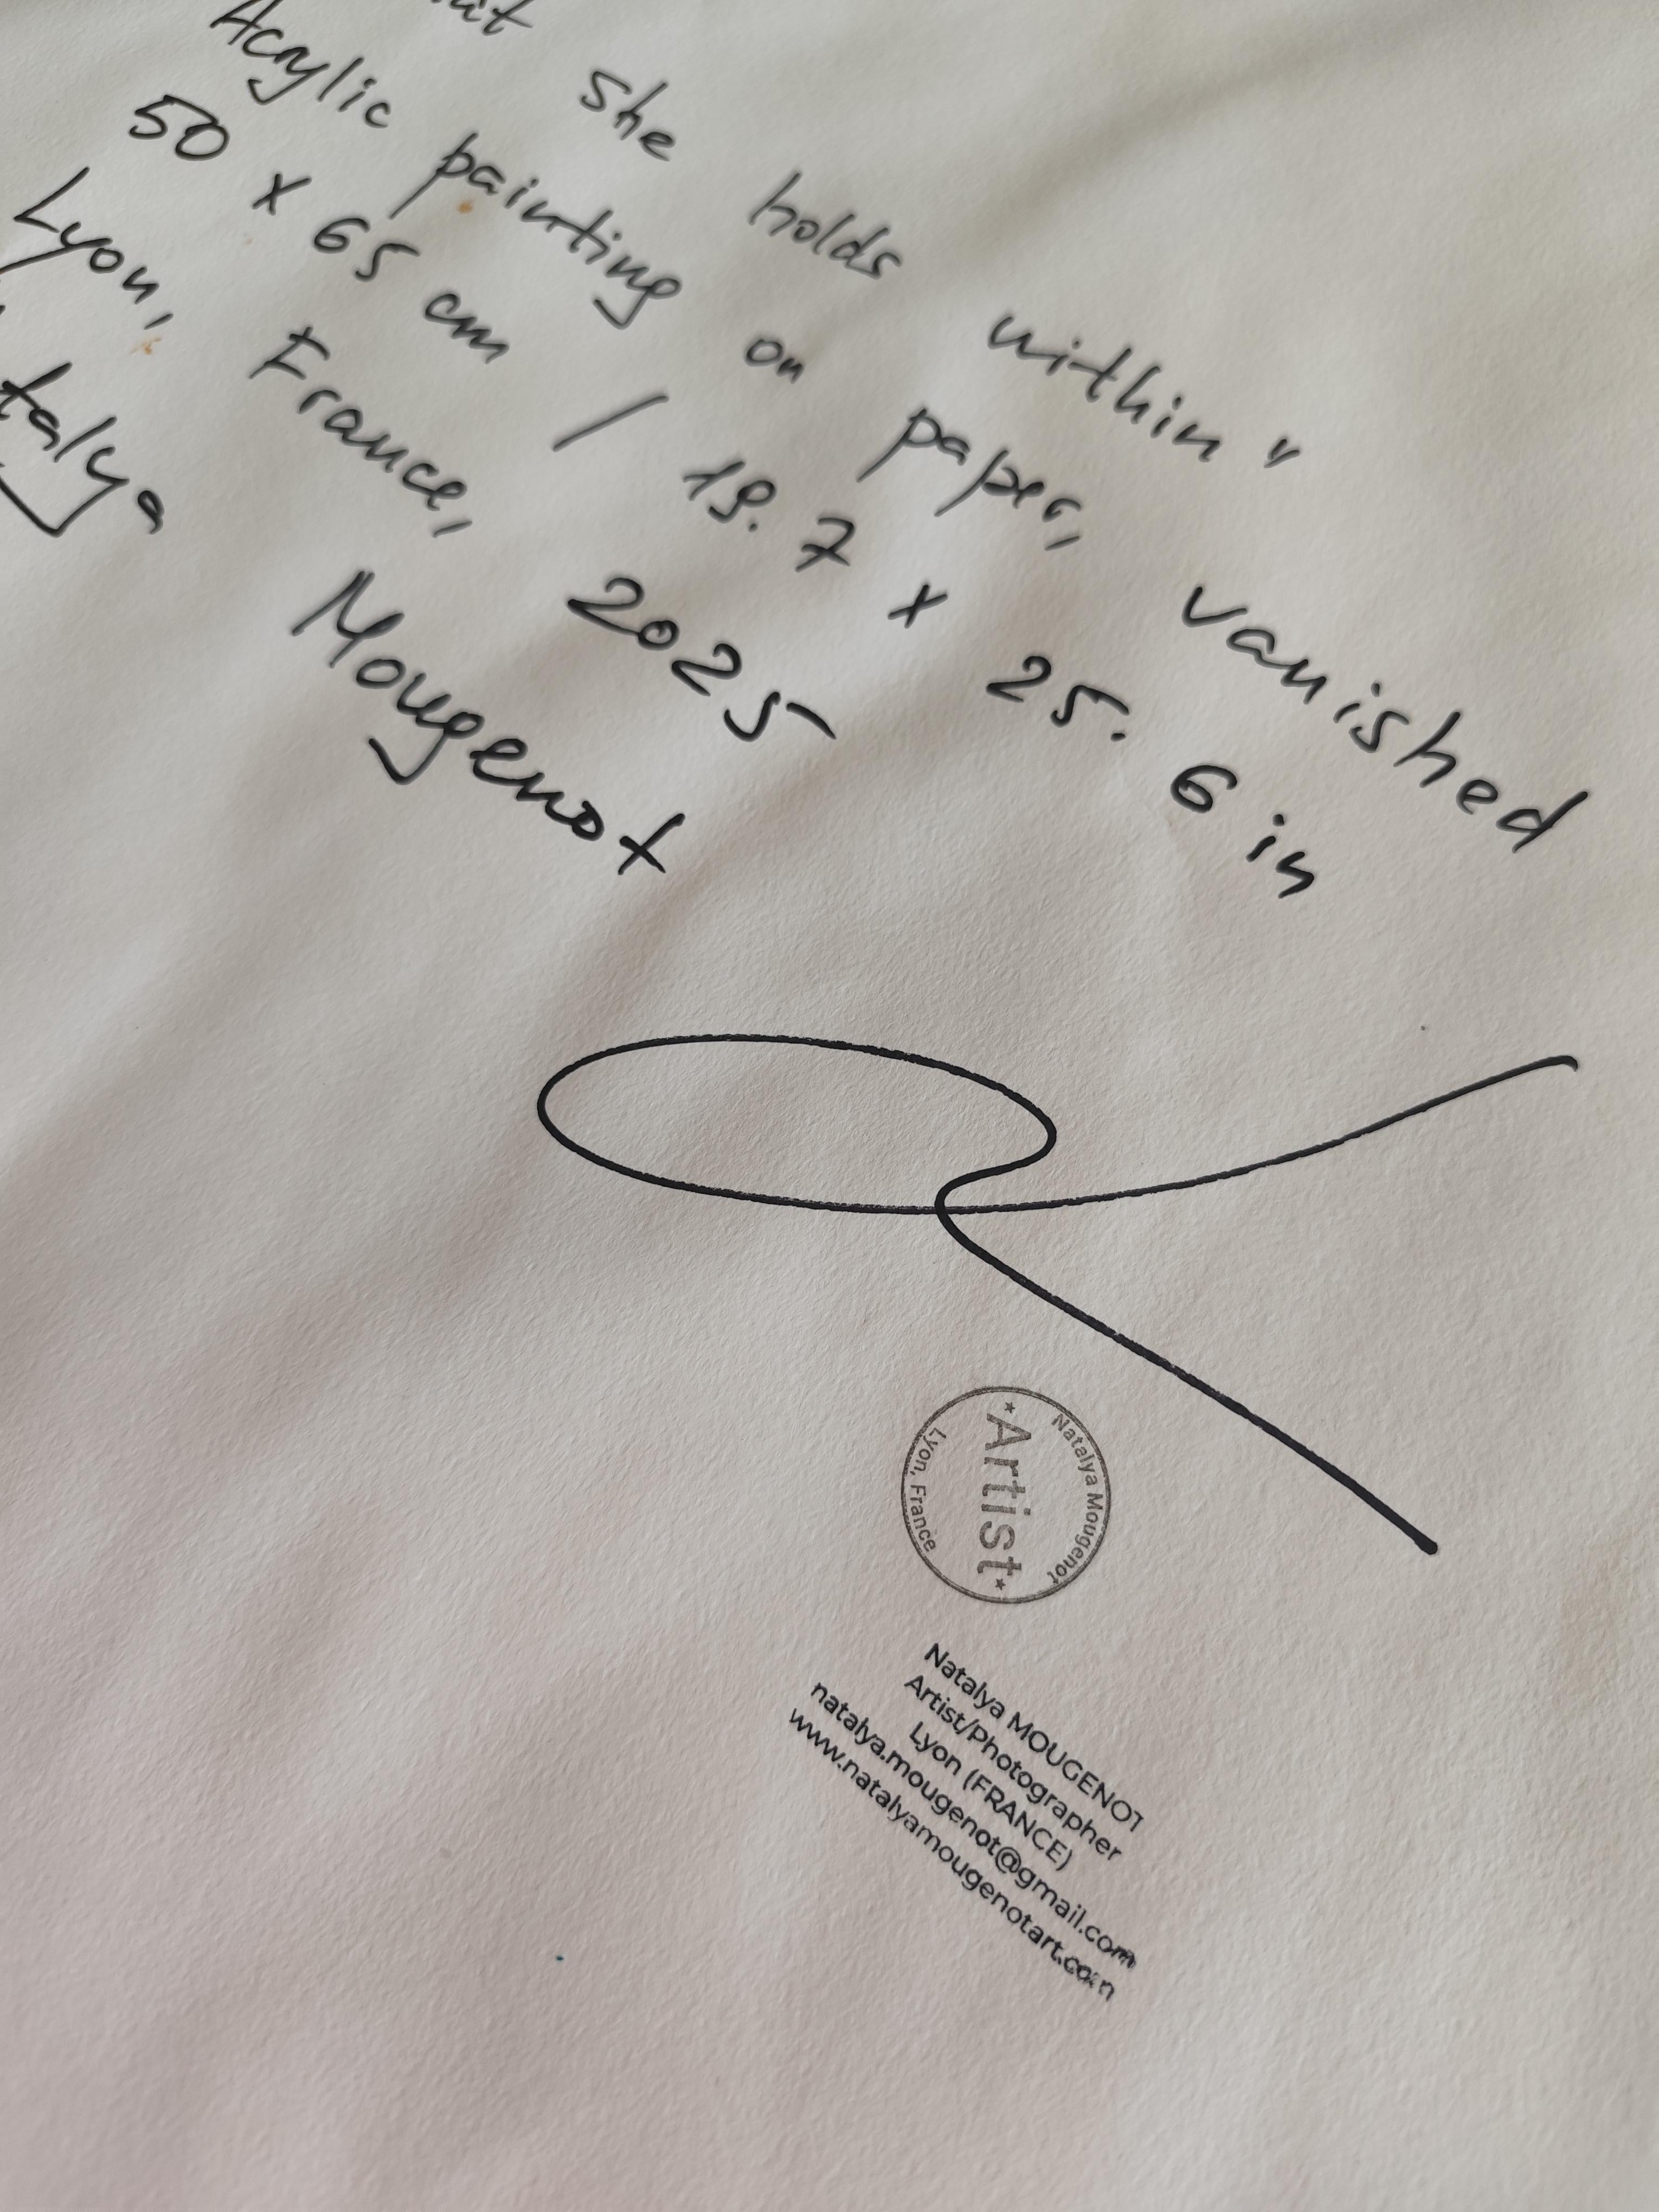 she holds within"
Acrylic painting on paper, vanished
50 x 65 cm / 19.7 x 25.6 in
Lyon, France, 2025
Mougenot
Natalya Mougenot
*Artist*
Lyon, France
Natalya MOUGENOT
Artist/Photographer
Lyon (FRANCE)
natalya.mougenot@gmail.com
www.natalyamougenotart.com